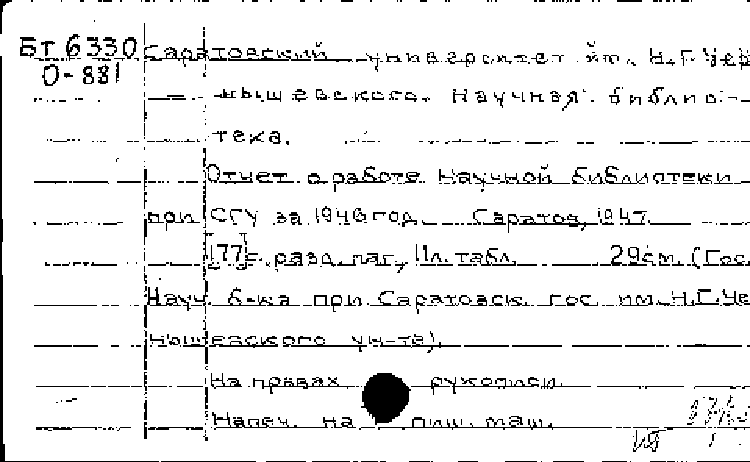 Бт 6330 Саратовский университет им. Н.Г.Чер
О-881
нышевского. Научная библио-
тека.
Отчет о работе Научной библиотеки
при СГУ за 1946 год. Саратов, 1947.
[77] с. разд. паг., 11 л. табл. 29см. (Гос.
Науч. б-ка при Саратовск. гос. им. Н.Г.Че
нышевского ун-те).
На правах рукописи.
Напеч. на пиш. маш.